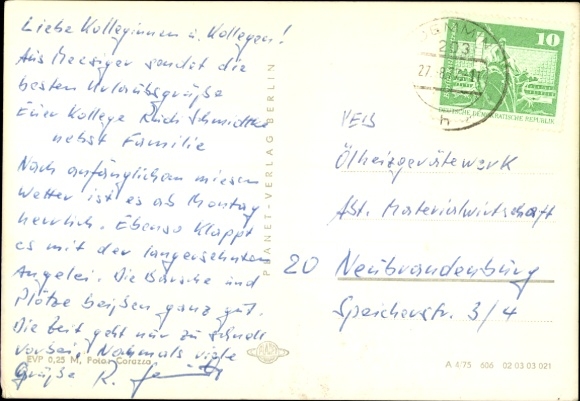 Liebe Kolleginnen u. Kollegen!
Aus Meesiger sendet die
besten Urlaubsgrüße
Euer Kollege Erich Schmidtke
nebst Familie
Nach anfänglichem miesen
Wetter ist es ab Montag
herrlich. Ebenso klappt
es mit der langersehnten
Angelei. Die Barsche und
Plötze beißen ganz gut.
Die Zeit geht nur zu schnell
vorbei. Nochmals viele
Grüße R.
EVP 0,25 M, Foto: Corazza
PLANET-VERLAG BERLIN
10
DEUTSCHE DEMOKRATISCHE REPUBLIK
203
27.-8.
VEB
Ölheizgerätewerk
Abt. Materialwirtschaft
20 Neubrandenburg
Speicherstr. 3/4
A 4/75 606 02 03 03 021